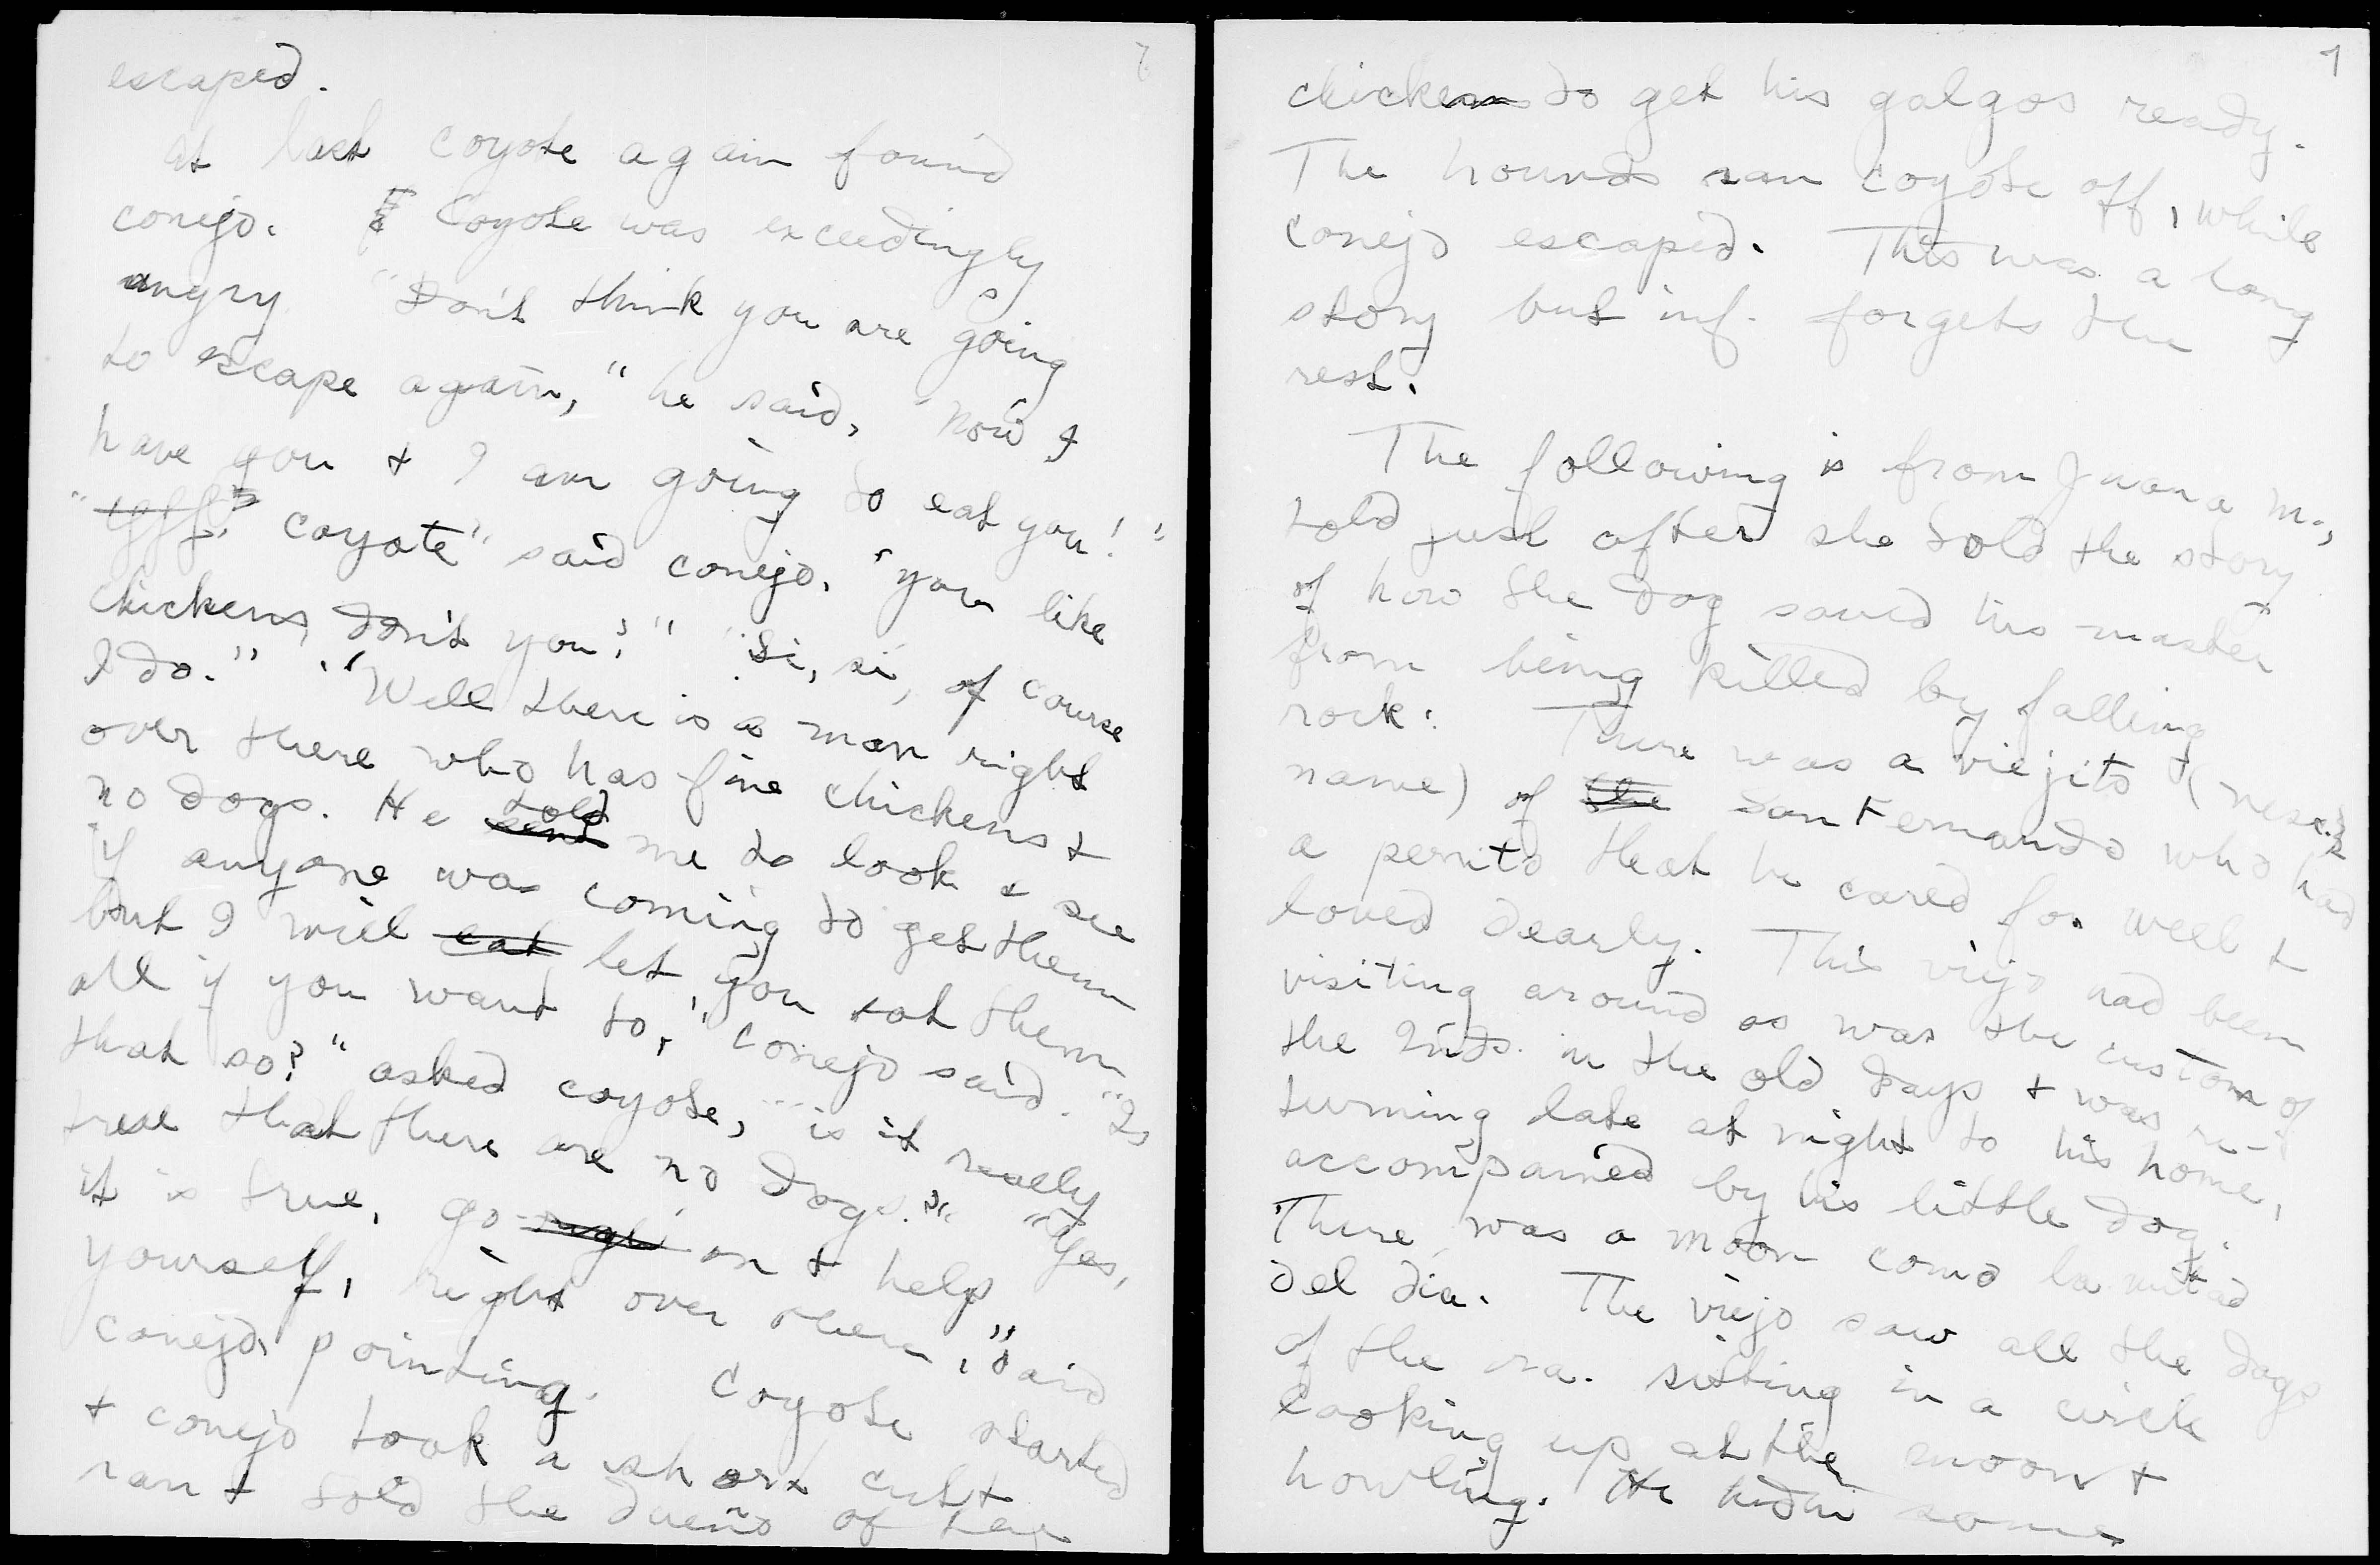 escaped.
at last coyote again found
conejo. Coyote was exceedingly
angry. "Don't think you are going
to escape again," he said, "now I
have you + I am going to eat you!"
coyote" said conejo, "you like
chickens, don't you?" "Si, si, of course
I do." "Well there is a man right
over there who has fine chickens +
no dogs. He sent told me to look + see
if anyone was coming to get them
but I will eat let you eat them
all if you want to," conejo said. "Is
that so?" asked coyote, "is it really
true that there are no dogs?" "Yes,
it is true, go on + help
yourself, right over there," said
conejo, pointing. Coyote started
+ conejo took a short cut +
ran + told the dueño of the
7
chickens to get his galgos ready.
The hounds ran coyote off, while
conejo escaped. This was a long
story but inf. forgets the
rest.
The following is from Juana M.,
told just after she told the story
of how the dog saved his master
from being killed by falling
rock: There was a viejito (nesc.
name) of the San Fernando who had
a perrito that he cared for well +
loved dearly. This viejo had been
visiting around as was the custom of
the Inds. in the old days + was re-
turning late at night to his home,
accompanied by his little dog.
There was a moon como la mitad
del dia. The viejo saw all the dogs
of the ra. sitting in a circle
looking up at the moon +
howling. He hid in some